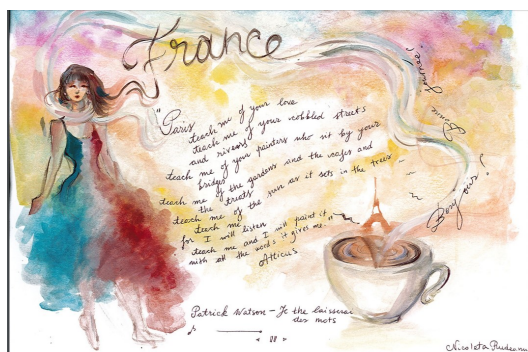 France
"Paris
teach me of your love
teach me of your cobbled streets
and rivers
teach me of your painters who sit by your
bridges
teach me of the gardens and the cafes and
the
teach me of the sun as it sets in the trees
teach me
for I will listen
teach me and I will paint it
with all the words it gives me."
Atticus
Bonne journée!
Bonjour!
Patrick Watson - Je the laisserai
des mots
Nicoleta